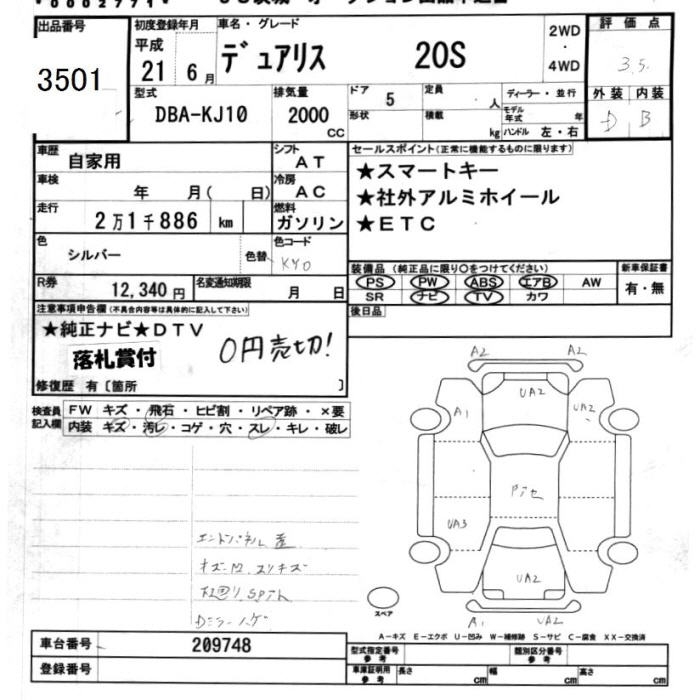 出品番号
3501
初度登録年月
平成
21 6月
車名・グレード
デュアリス 20S
2WD
・
4WD
評価点
3.5
外装 内装
D B
型式
DBA-KJ10
排気量
2000
CC
ドア
5
定員
人
形状
積載
kg
ディーラー・並行
モデル
年式
年
ハンドル 左・右
車歴
自家用
シフト
AT
車検
年 月( 日)
冷房
AC
走行
2万1千886 km
燃料
ガソリン
色
シルバー
色替
色コード
KY0
R券
12,340円
名変通知期限
月 日
セールスポイント(正常に機能するものに限ります)
★スマートキー
★社外アルミホイール
★ETC
装備品(純正品に限り○をつけてください)
PS PW ABS エアB AW
SR ナビ TV カワ
新車保証書
有・無
後日品
注意事項申告欄(不具合内容等は具体的に記入して下さい)
★純正ナビ★DTV
落札賞付
0円売切!
修復歴 有〔箇所 〕
検査員
記入欄
FW キズ・飛石・ヒビ割・リペア跡・×要
内装 キズ・汚レ・コゲ・穴・スレ・キレ・破レ
A2 A2
UA2
A1
UA2
UA3
UA2
A1 UA2
スペア
A-キズ E-エクボ U-凹み W-補修跡 S-サビ C-腐食 XX-交換済
車台番号
209748
登録番号
型式指定番号
参考
類別区分番号
参考
車庫証明用
参考
長さ
cm
幅
cm
高さ
cm